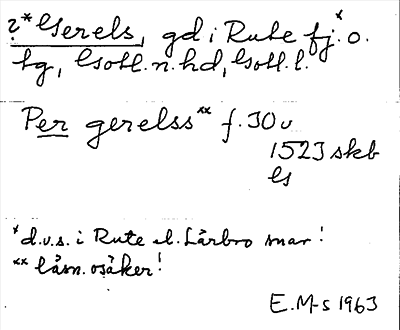 ?*Gerels, gd i Rute fj.* o.
tg, Gotl. n. hd, Gotl. l.
Per gerelss** f. 30 v
1523 skb
ls
* d.v.s. i Rute el. Lärbro snar!
** läsn. osäker!
E. M-s 1963